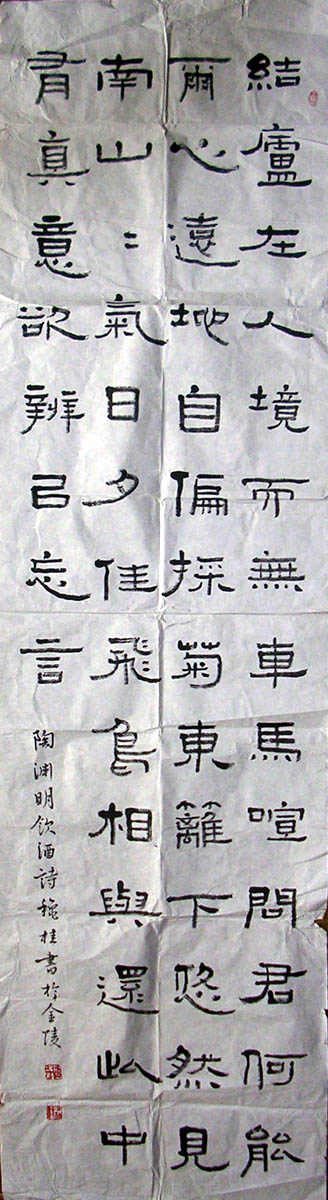 結廬在人境而無車馬喧問君何能
爾心遠地自偏採菊東籬下悠然見
南山山氣日夕佳飛鳥相與還此中
有真意欲辨已忘言
陶淵明飲酒詩穆桂書於金陵